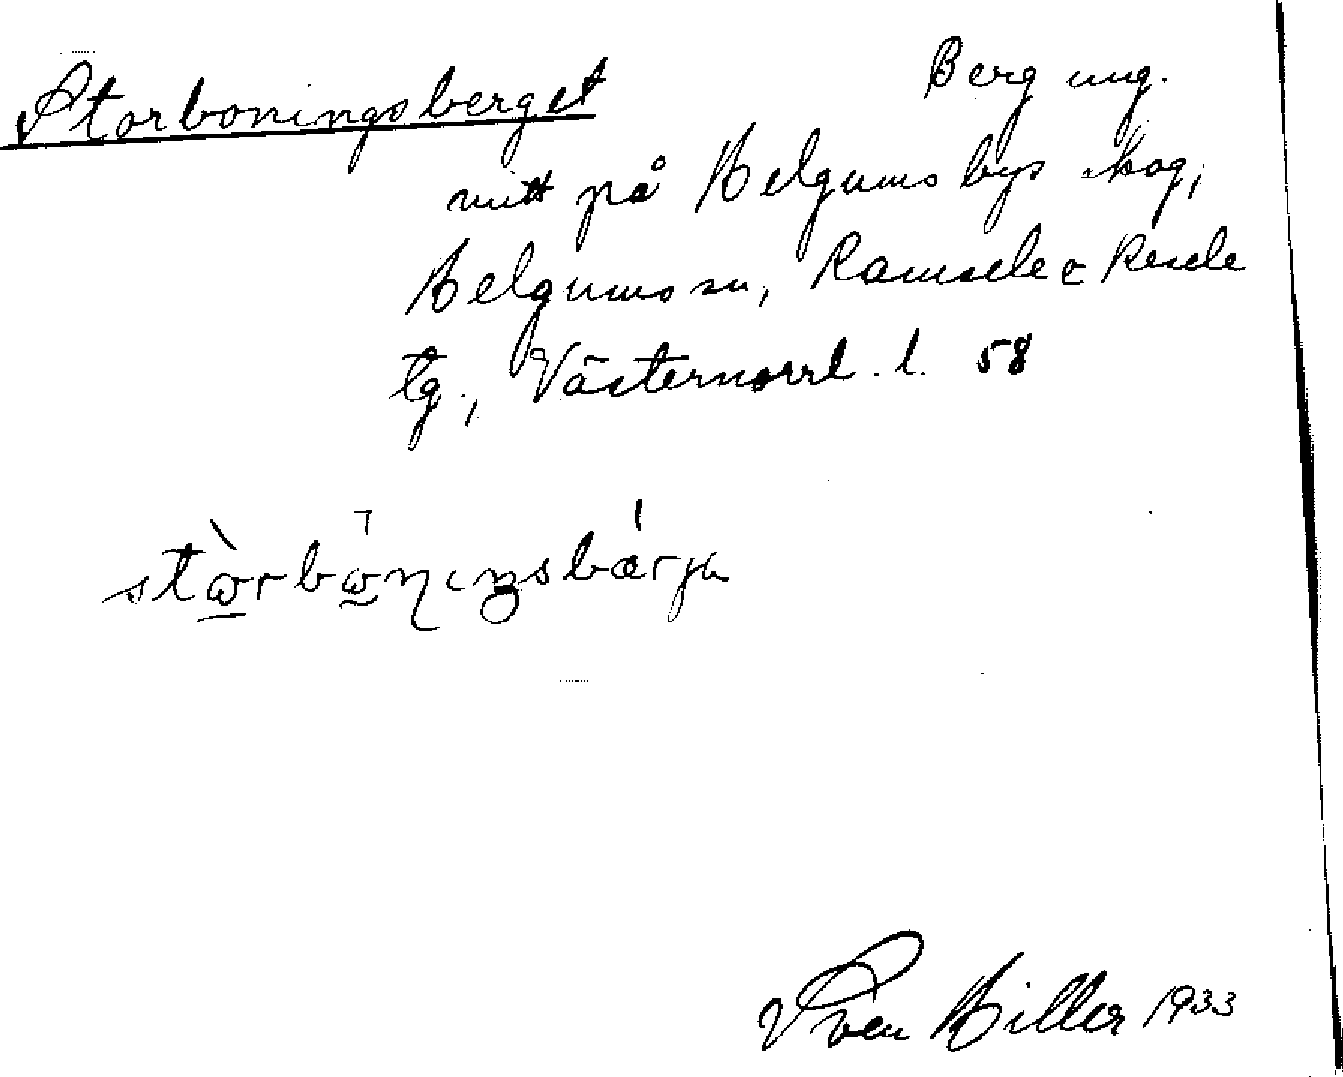 Storboningsberget Berg ung.
mitt på Helgums bys skog,
Helgums sn, Ramsele & Resele
tg., Västernorrl. l. 58
stòrbōnıŋsbǽrjα
Sven Hiller 1933